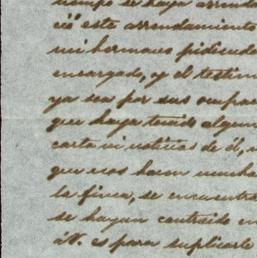 tiempo se haya arrenda
ció este arrendamiento
mi hermano pidiendo
encargado, y el testim
ya sea por sus ocupac
que haya tenido algun
carta ni noticias de él,
que nos hacen mucha
la finca, se encuentra
se hayan
á V. es para suplicarle